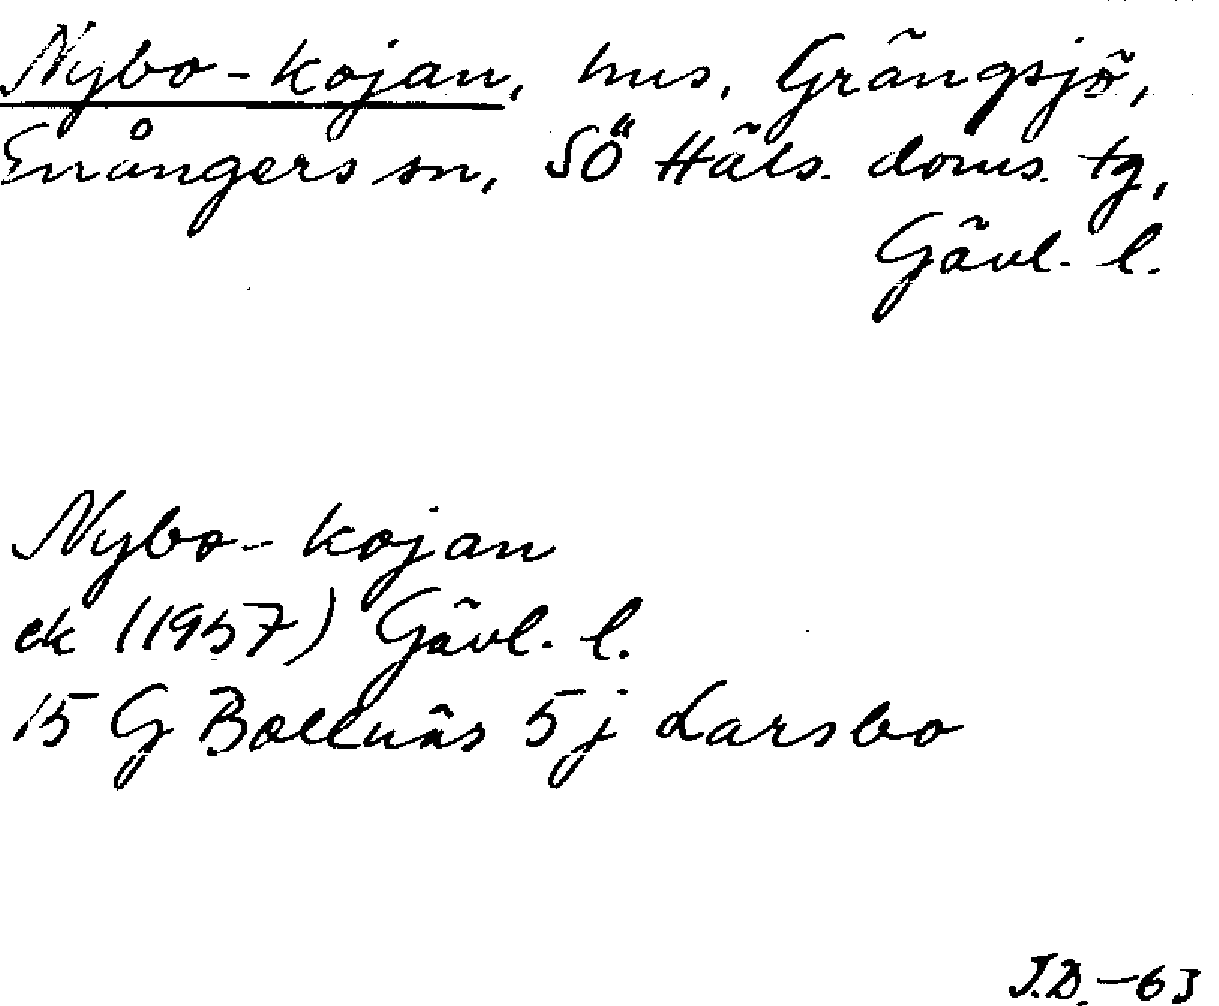 Nybo-kojan, hus, Grängsjö,
Enångers sn, SÖ Häls. doms. tg,
Gävl. l.
Nybo-kojan
ek (1957) Gävl. l.
15 G Bollnäs 5j Larsbo
J.D. -63